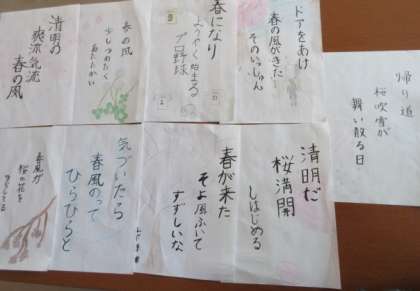 帰り道
桜吹雪が
舞い散る日
ドアをあけ
春の風がきた
そのいっしゅん
春になり
ようやく始まる
プロ野球
春の風
少しつめたく
あたたかい
清明の
爽涼気流
春の風
清明だ
桜満開
しはじめる
春が来た
そよ風ふいて
すずしいな
気づいたら
春風のって
ひらひらと
春風が
桜の花を